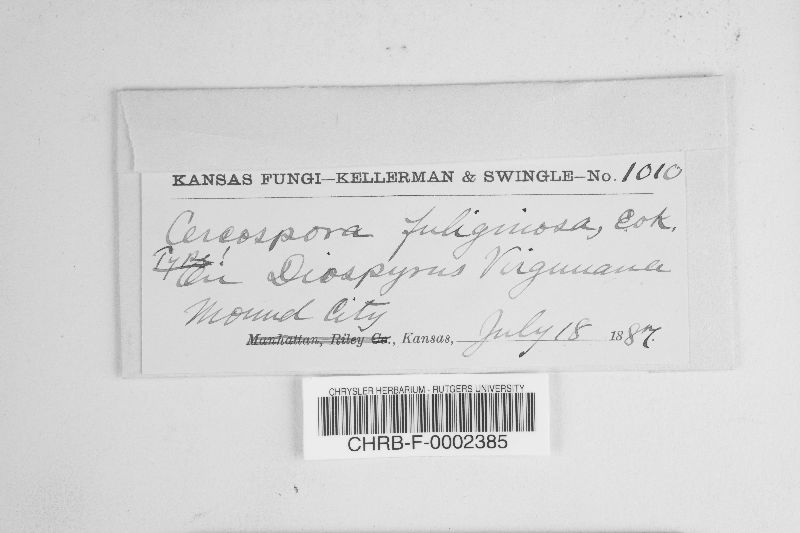 KANSAS FUNGI—KELLERMAN & SWINGLE—No. 1010
Cercospora fuliginosa, E. & K.
Type!
On Diospyrus Virginiana
Mound City
Manhattan, Riley Co., Kansas, July 18 1887.
CHRYSLER HERBARIUM - RUTGERS UNIVERSITY
CHRB-F-0002385